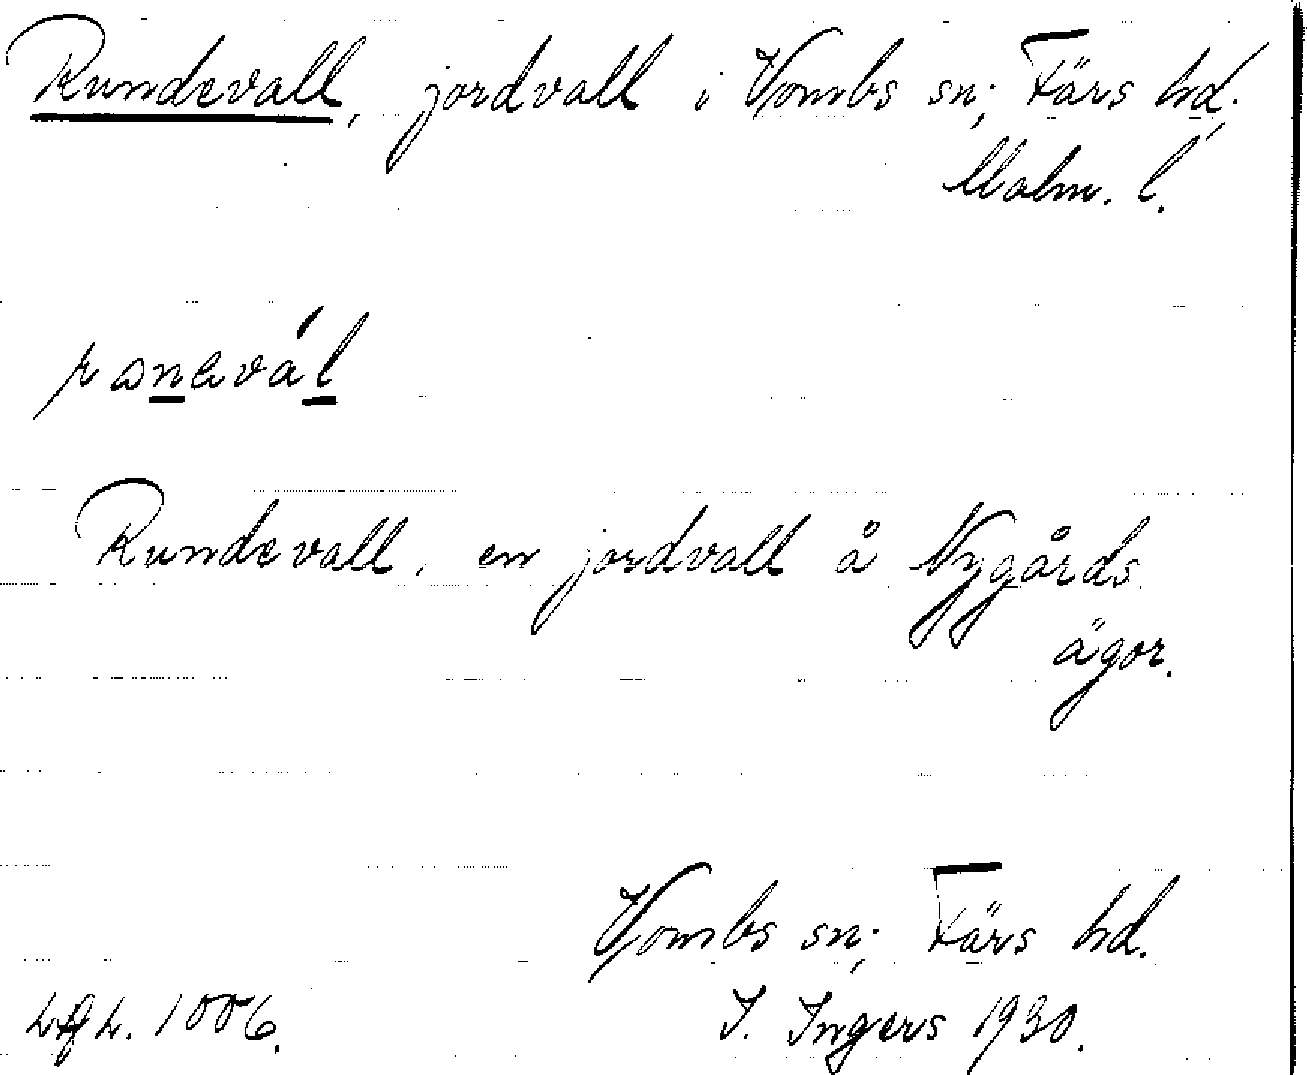 Rundevall, jordvall i Vombs sn; Färs hd.
Malm. l.
Rundevall, en jordvall å Nygårds
ägor.
Vombs sn; Färs hd.
1006.
I. Ingers 1930.